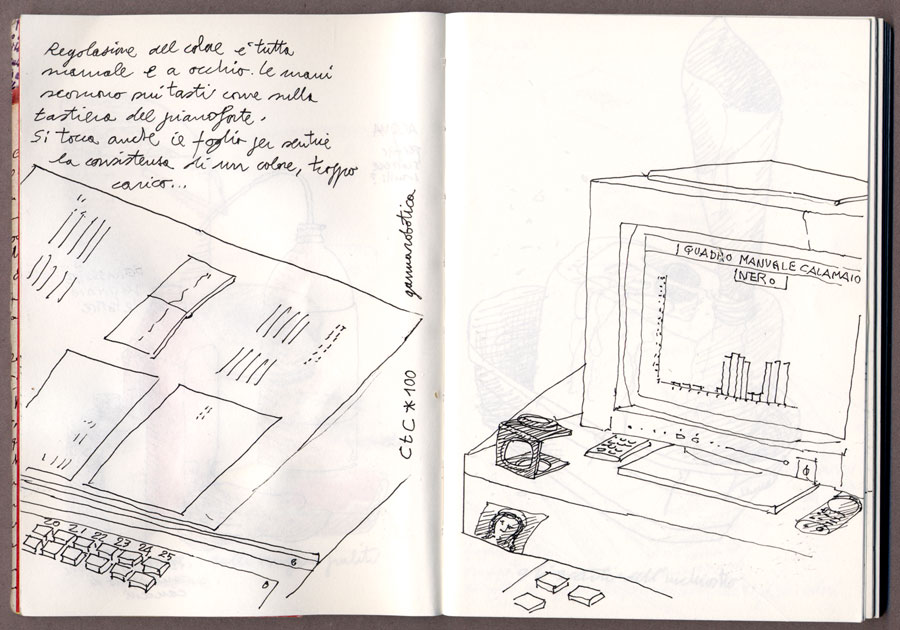 Regolazione del colore è tutta
manuale e a occhio. Le mani
scorrono sui tasti come sulla
tastiera del pianoforte.
Si tocca anche il foglio per sentire
la consistenza di un colore, troppo
carico...
gammarobotica
CtC *100
20 21 22 23 24 25
QUADRO MANUALE CALAMAIO
NERO